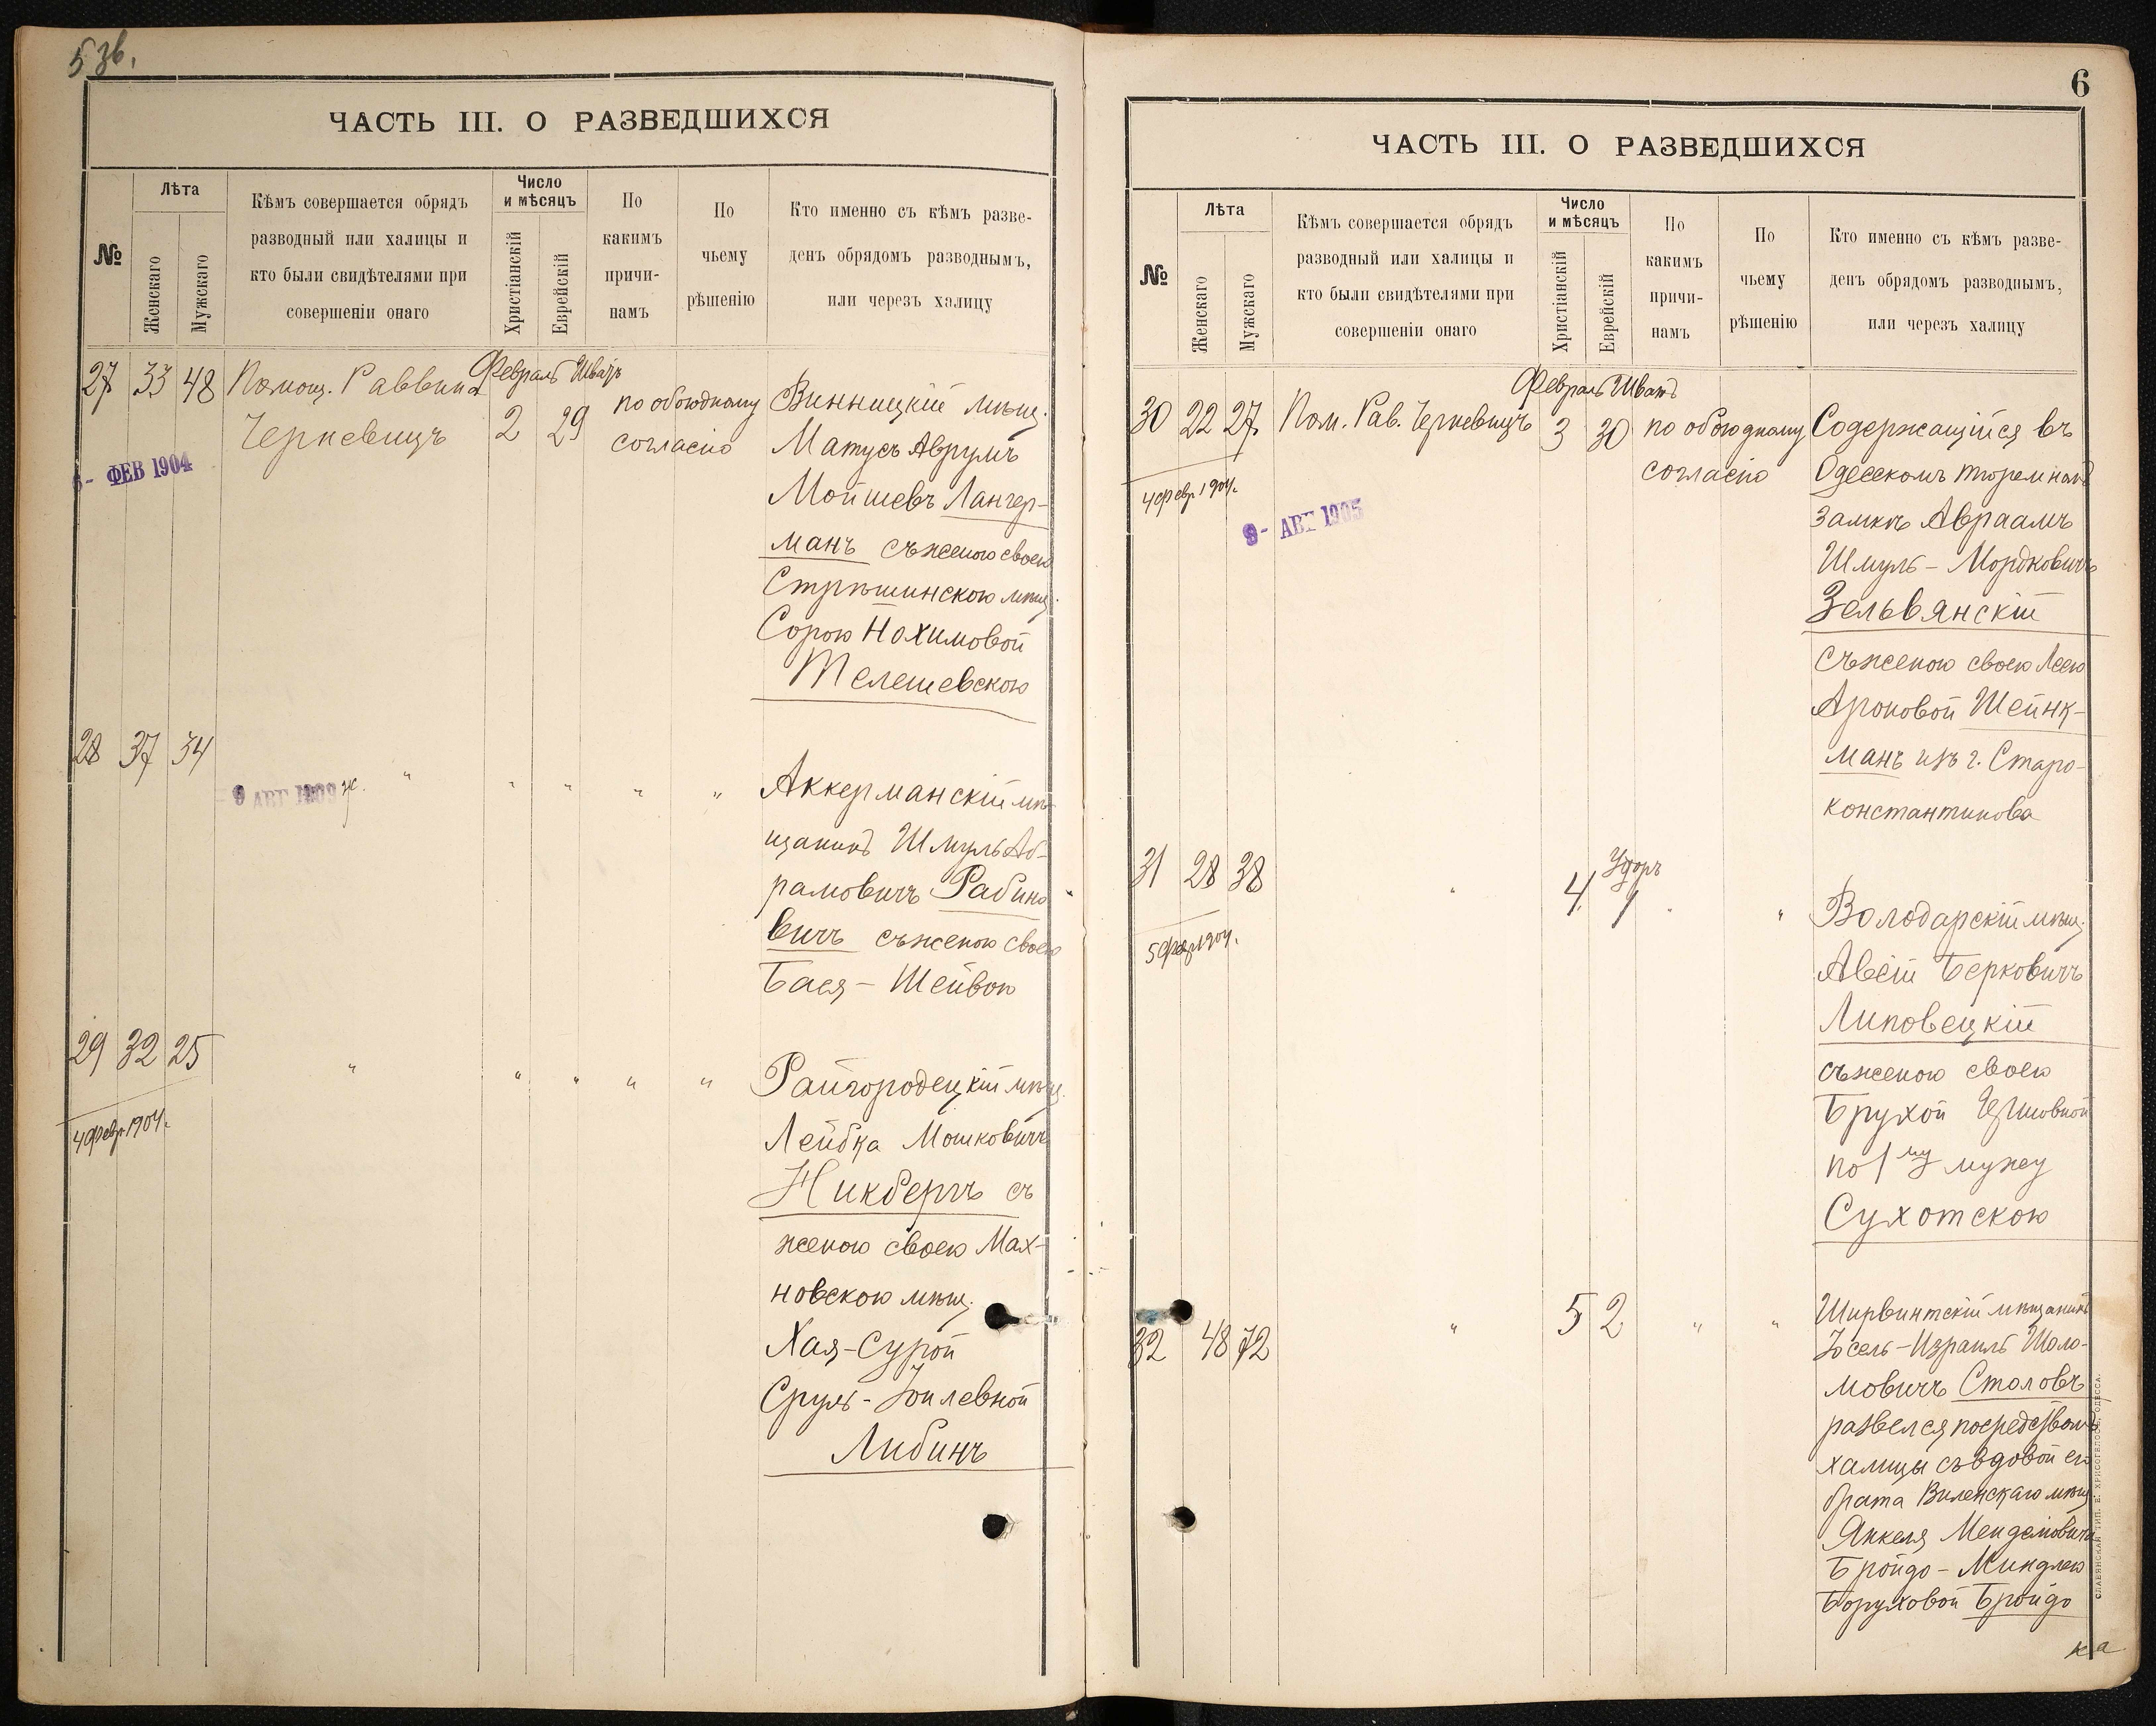 5 зв.
ЧАСТЬ III. О РАЗВЕДШИХСЯ
№
Лѣта
Женскаго
Мужскаго
Кѣмъ совершается обрядъ
разводный или халицы и
кто были свидѣтелями при
совершеніи онаго
Число
и мѣсяцъ
Христіанскій
Еврейскій
По
какимъ
причи-
намъ
По
чьему
рѣшенію
Кто именно съ кѣмъ разве-
денъ обрядомъ разводнымъ,
или черезъ халицу
27 33 48 Помощ. Раввина
Черкевицъ
Февраль Шватъ
2 29
по обоюдному
согласію
ФЕВ 1904
Винницкій мѣщ.
Матусъ Аврумъ
Мойшевъ Лангер-
манъ съ женою своею
Стрѣшинскою мѣщ.
Сорою Нохимовой
Телешевскою
28 37 34 " " " " "
9 АВГ 1909 ж.
Аккерманскій мѣ-
щанинъ Шмуль Аб-
рамовичъ Рабино
вичъ съ женою своею
Бася-Шейвою
29 32 25 " " " " "
4 февр. 1904 г.
Райгородецкій мѣщ.
Лейбка Мошковичъ
Никбергъ съ
женою своею Мах-
новскою мѣщ.
Хая-Сурой
Сруль-Іоилевной
Либинъ
6
ЧАСТЬ III. О РАЗВЕДШИХСЯ
№
Лѣта
Женскаго
Мужскаго
Кѣмъ совершается обрядъ
разводный или халицы и
кто были свидѣтелями при
совершеніи онаго
Число
и мѣсяцъ
Христіанскій
Еврейскій
По
какимъ
причи-
намъ
По
чьему
рѣшенію
Кто именно съ кѣмъ разве-
денъ обрядомъ разводнымъ,
или черезъ халицу
30 22 27 Пом. Рав. Черкевицъ
Февраль Шватъ
3 30
по обоюдному
согласію
4 февр. 1904 г.
9 - АВГ 1905
Содержащійся въ
Одесскомъ тюремномъ
замкѣ Авраамъ
Шмуль-Мордковичъ
Зельвянскій
съ женою своею Леею
Ароновой Шейнк-
манъ изъ г. Старо-
константинова
31 28 38 "
4 1 " "
5 февр. 1904 г.
Володарскій мѣщ.
Берковичъ
Липовецкій
съ женою своею
Брухой
по 1му мужу
Сухотскою
32 48 72 " 5 2 " "
Ширвинтскій мѣщанинъ
Іосель-Израиль Шоло-
мовичъ Столовъ
развелся посредствомъ
халицы съ вдовой его
брата Виленскаго мѣщ.
Янкеля Менделовича
Бройдо-Миндлею
Боруховой Бройдо
ка
СЛАВЯНСКАЯ ТИП. Е. ХРИСОГЕЛОСЪ, ОДЕССА.